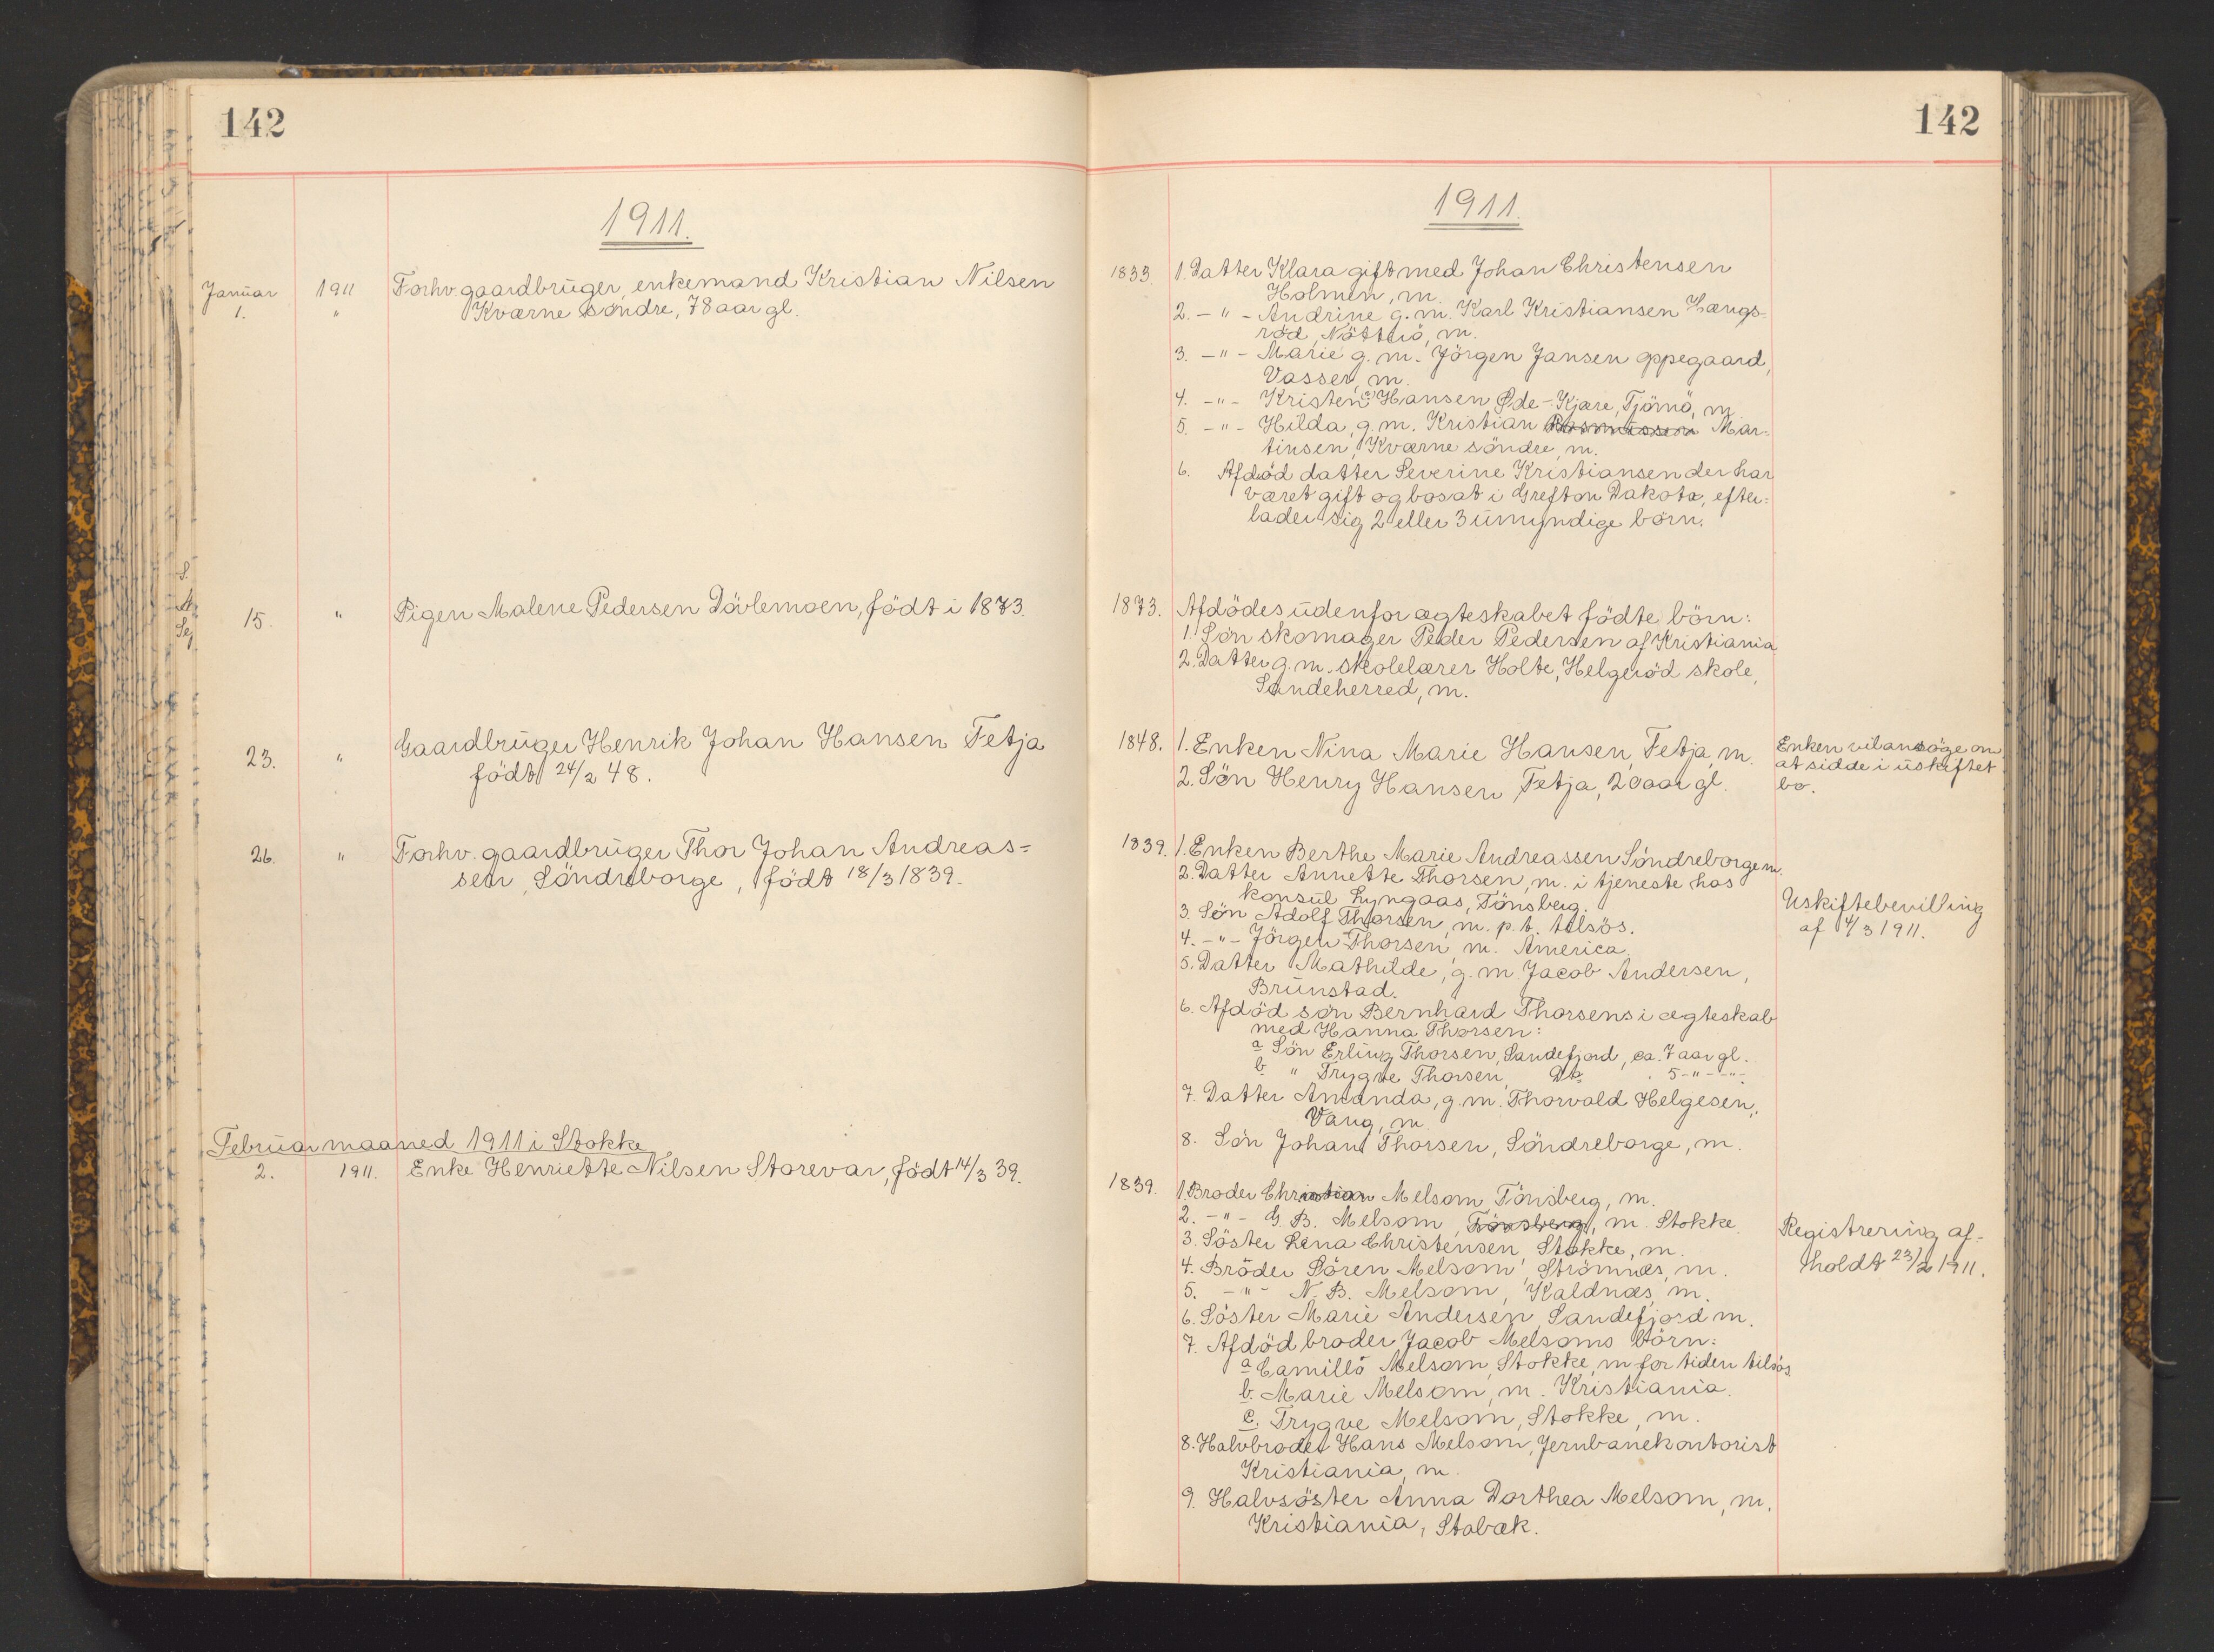 142
1911.
Januar 1911 Forhv. gaardbruger, enkemand Kristian Nilsen
1. " Kværne söndre, 78 aar gl.
15. " Pigen Malene Pedersen Dövlemoen, födt i 1873.
23. " Gaardbruger Henrik Johan Hansen Fetja
födt 24/2 48.
26. " Forhv. gaardbruger Thor Johan Andreas=
sen, Söndreborge, födt 18/3 1839.
Februar maaned 1911 i Stokke
2. 1911. Enke Henriette Nilsen Storevar, födt 14/3 39.
142
1911.
1833. 1. Datter Klara gift med Johan Christensen
Holmen, m.
2. - " - Andrine g. m. Karl Kristiansen Hængs-
röd, Nötterö, m.
3. - " - Marie g. m. Jörgen Jansen Oppegaard,
Vasser, m.
4. - " - Kristen Hansen Øde-Kjære, Tjömö, m.
5. - " - Hilda, g. m. Kristian Rasmussen Mar-
tinsen, Kværne söndre, m.
6. Afdöd datter Severine Kristiansen der har
været gift og bosat i Grefton Dakota, efter-
lader sig 2 eller 3 umyndige börn.
1873. Afdödes udenfor ægteskabet födte börn:
1. Sön skomager Peder Pedersen af Kristiania
2. Datter g. m. skolelærer Holte, Helgeröd skole,
Sandeherred, m.
1848. 1. Enken Nina Marie Hansen, Fetja, m.
2. Sön Henry Hansen Fetja, 20 aar gl.
Enken vil ansöge om
at sidde i uskiftet
bo.
1839. 1. Enken Berthe Marie Andreassen Söndreborge m.
2. Datter Annette Thorsen, m. i tjeneste hos
konsul Lyngaas, Tönsberg.
3. Sön Adolf Thorsen, m. p. t. tilsös.
4. - " - Jörgen Thorsen, m. America.
5. Datter Mathilde, g. m. Jacob Andersen,
Brunstad.
6. Afdöd sön Bernhard Thorsens i ægteskab
med Hanna Thorsen:
a Sön Erling Thorsen, Sandefjord, ca. 7 aar gl.
b " Trygve Thorsen, Do 5 - " - - " -
7. Datter Amanda, g. m. Thorvald Helgesen,
Vang, m.
8. Sön Johan Thorsen, Söndreborge, m.
Uskiftebevilling
af 4/3 1911.
1839. 1. Broder Christian Melsom Tönsberg, m.
2. - " - G. B. Melsom, Tönsberg, m. Stokke
3. Söster Lena Christensen, Stokke, m.
4. Bröder Sören Melsom, Strömnæs, m.
5. - " - N. B. Melsom, Kaldnæs, m.
6. Söster Marie Andersen, Sandefjord m.
7. Afdöd broder Jacob Melsoms börn:
a Camillo Melsom, Stokke, m for tiden tilsös.
b. Marie Melsom, m. Kristiania.
c. Trygve Melsom, Stokke, m.
8. Halvbroder Hans Melsom, Jernbanekontorist
Kristiania, m.
9. Halvsöster Anna Dorthea Melsom, m.
Kristiania, Stabæk.
Registrering af-
holdt 23/2 1911.